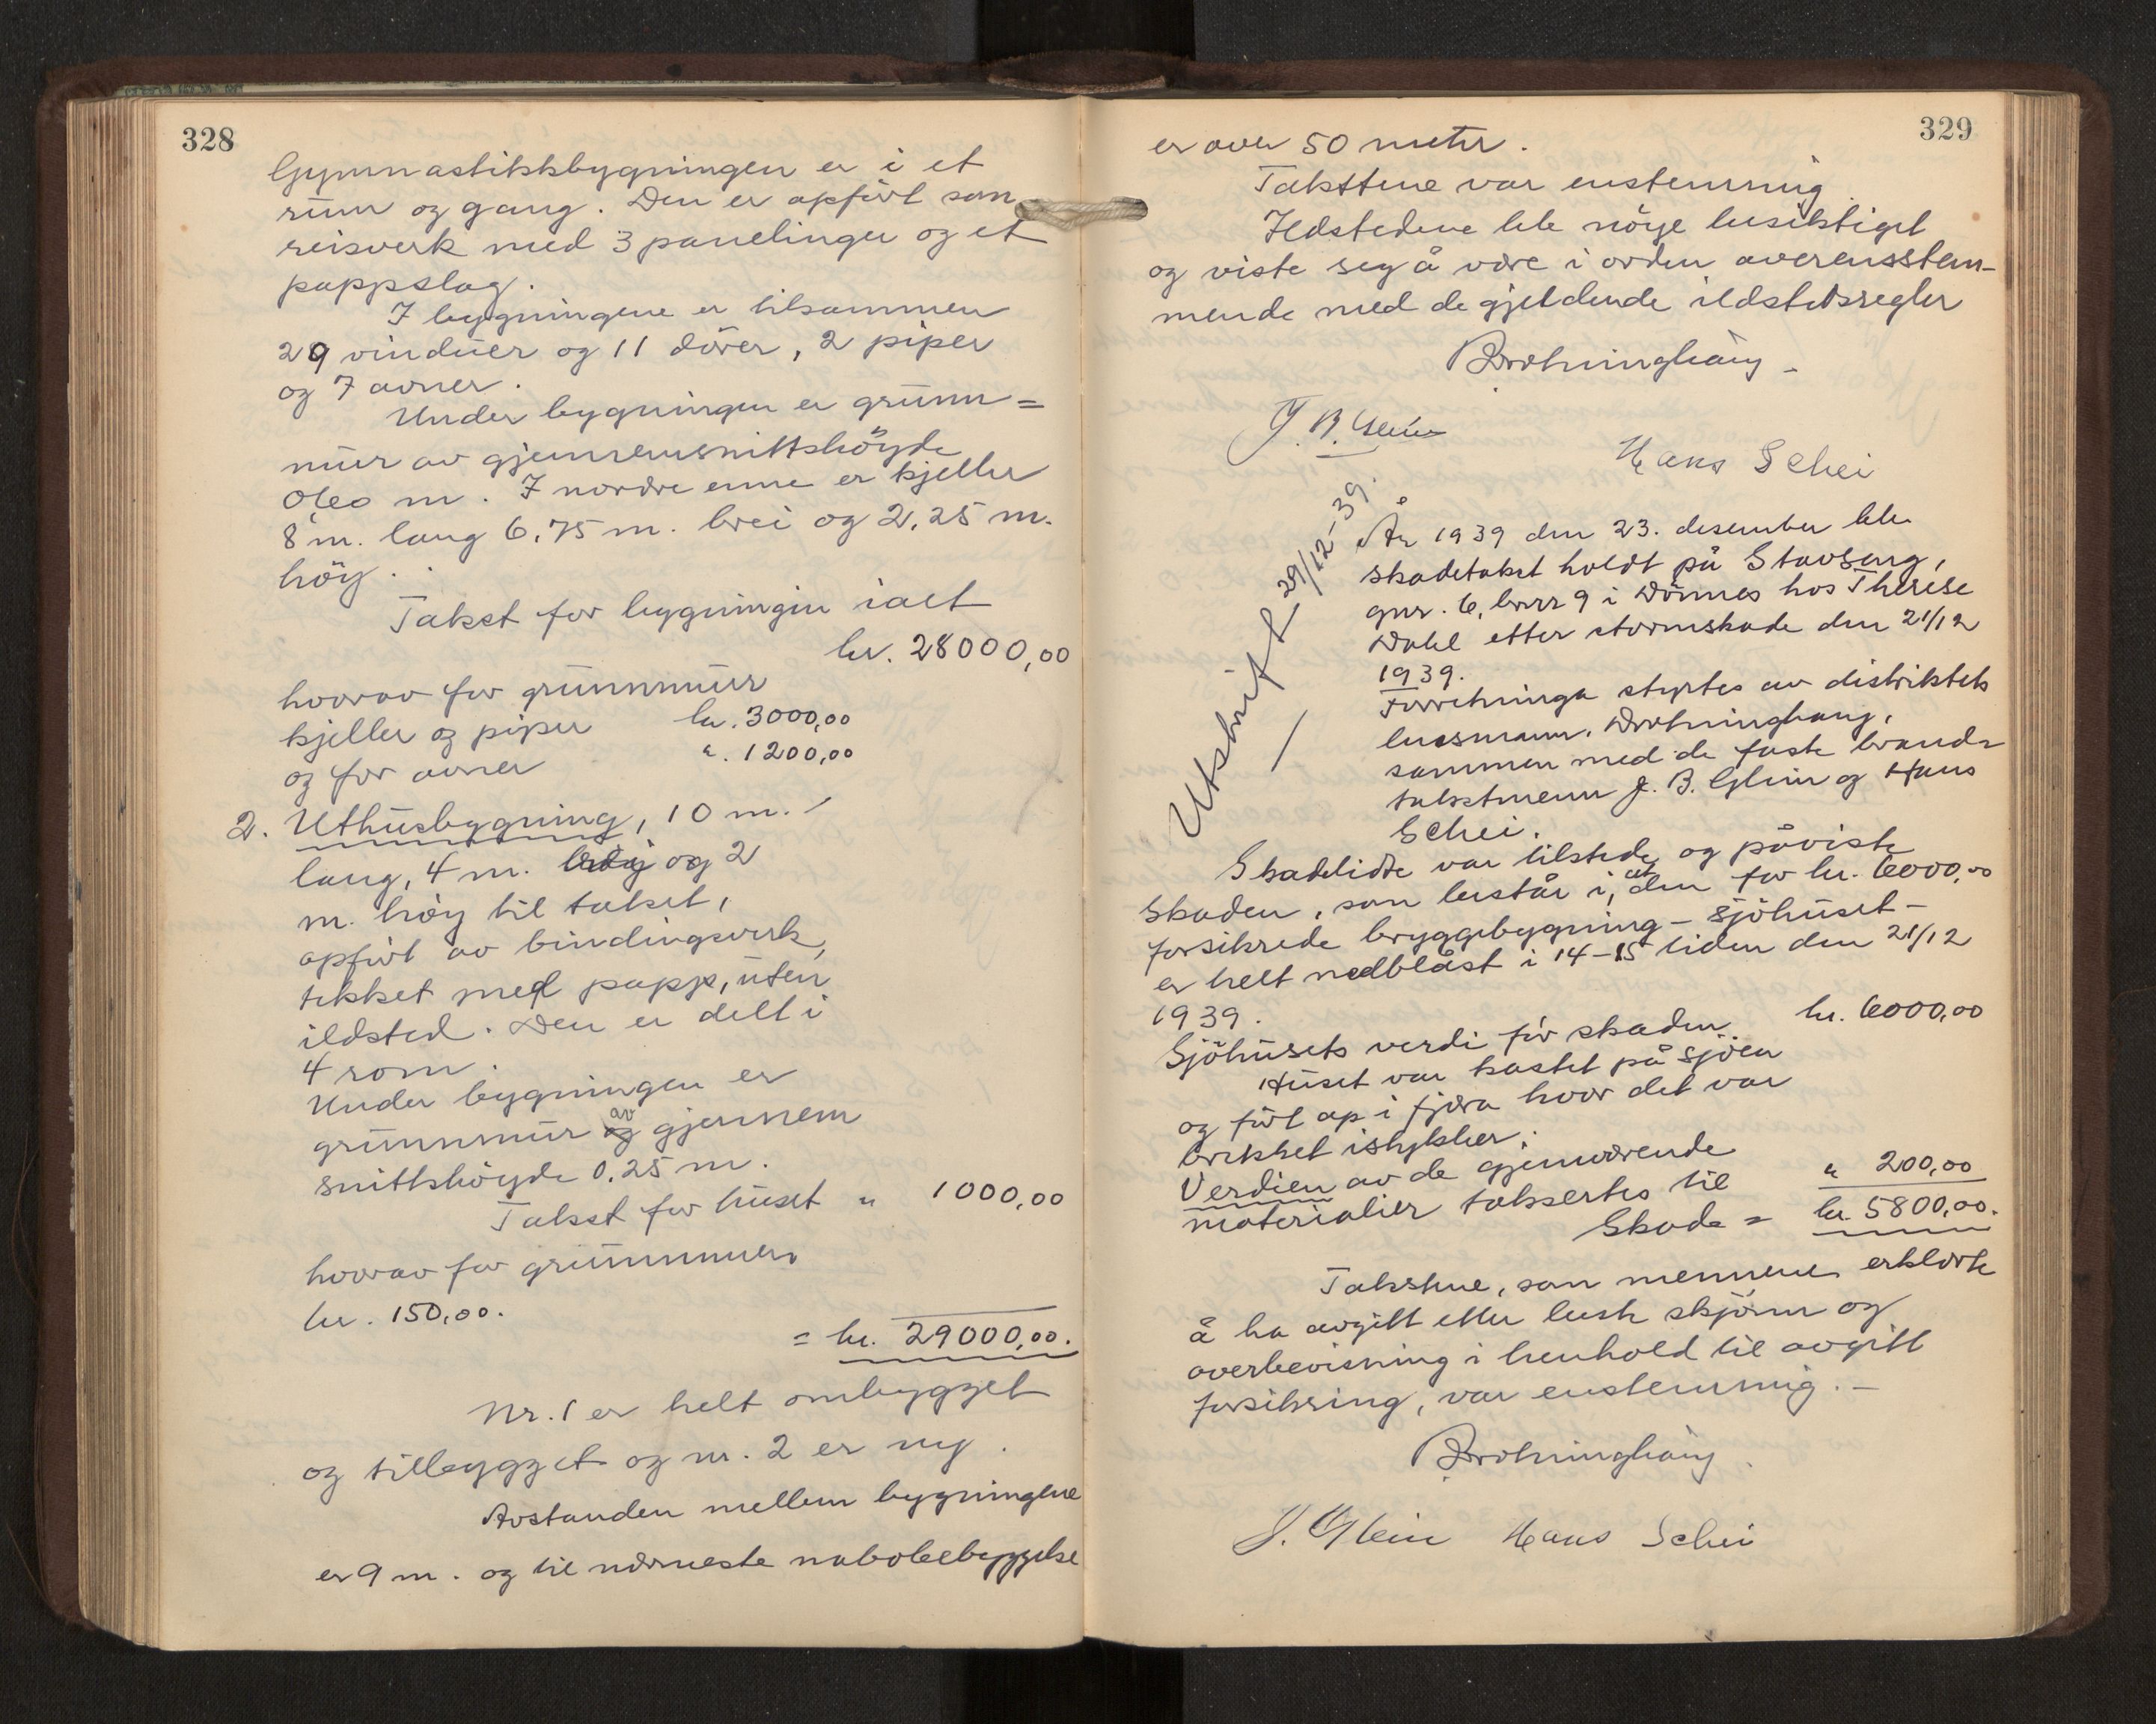 328
Gymnastikkbygningen er i et
rum og gang. Den er opført som
reisverk med 3 panelinger og et
pappslag.
I bygningene er tilsammen
29 vinduer og 11 dörer, 2 piper
og 7 ovner.
Under bygningen er grunn=
mur av gjennemsnittshöyde
0,60 m. I nordre enne er kjeller
8 m. lang 6,75 m. brei og 2,25 m.
höy.
Takst for bygningin ialt
kr. 28000,00
hvorav for grunnmur
kjeller og piper kr. 3000,00
og for ovner ". 1200,00
2. Uthusbygning, 10 m.
lang, 4 m. brei og 2
m. höy til taket,
opfört av bindingsverk,
tekket med papp, uten
ildsted. Den er delt i
4 rom.
Under bygningen er
grunnmur og av gjennem
snittshöyde 0,25 m.
Takst for huset " 1000,00
hvorav for grunnmur
kr. 150,00.
= kr. 29000,00.
Nr. 1 er helt ombygget
og tilbygget og nr. 2 er ny.
Avstanden mellem bygningene
er 9 m. og til nærmeste nabobebyggelse
329
er over 50 meter.
Takstene var enstemmig.
Ildstedene ble nöye besiktiget
og viste seg å være i orden overensstem-
mende med de gjeldende ildstedsregler
Drotninghaug
J. B. Glein
Hans Schei
Utskrift 29/12-39.
År 1939 den 23. desember ble
skadetakst holdt på Stavseng,
gnr. 6, brnr 9 i Dönnes hos Therese
Dahl etter stormskade den 21/12
1939.
Forretninga styrtes av distriktets
lensmann, Drotninghaug,
sammen med de faste brand-
takstmenn J. B. Glein og Hans
Schei.
Skadelidte var tilstede og påviste
skaden, som består i, at den for kr. 6000,00
forsikrede bryggebygning - sjöhuset -
er helt nedblåst i 14-15 tiden den 21/12
1939.
Sjöhusets verdi för skaden kr. 6000,00
Huset var kastet på sjöen
og fört op i fjæra hvor det var
brekket istykker.
Verdien av de gjenværende
materialier taksertes til " 200,00
Skade = kr. 5800,00.
Takstene, som mennene erklærte
å ha avgitt etter beste skjönn og
overbevisning i henhold til avgitt
forsikring, var enstemmig. -
Drotninghaug
J. Glein Hans Schei